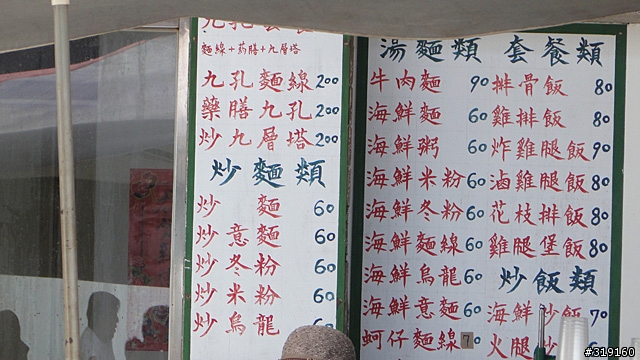 九孔套餐
麵線+葯膳+九層塔
九孔麵線 200
藥膳九孔 200
炒九層塔 200
炒麵類
炒麵 60
炒意麵 60
炒冬粉 60
炒米粉 60
炒烏龍 60
湯麵類
牛肉麵 90
海鮮麵 60
海鮮粥 60
海鮮米粉 60
海鮮冬粉 60
海鮮麵線 60
海鮮烏龍 60
海鮮意麵 60
蚵仔麵線 7
套餐類
排骨飯 80
雞排飯 80
炸雞腿飯 90
滷雞腿飯 80
花枝排飯 80
雞腿堡飯 80
炒飯類
海鮮炒飯 70
火腿炒
#319160